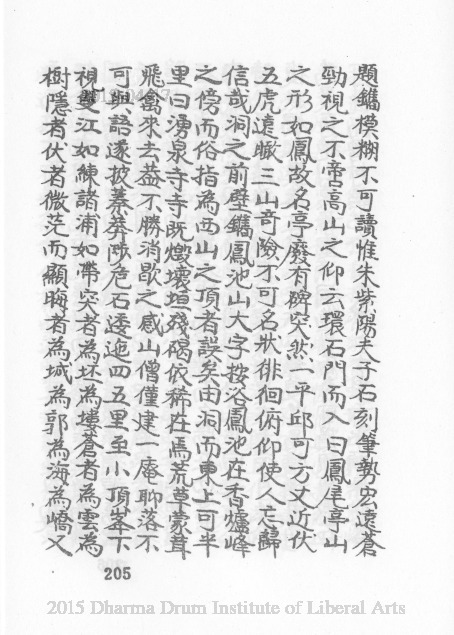 題鐫模糊不可讀惟朱紫陽夫子石刻筆勢宏遠蒼
勁視之不啻高山之仰云環石門而入曰鳳尾亭山
之形如鳳故名亭廢有碑突然一平邱可方丈近伏
五虎遠瞰三山奇險不可名狀徘徊俯仰使人忘歸
信哉洞之前壁鐫鳳池山大字按浴鳳池在香爐峰
之傍而俗指為西山之頂者誤矣由洞而東上可半
里曰湧泉寺寺既燬壞垣殘碣依稀在焉荒草蒙茸
飛禽來去葢不勝消歇之感山僧僅建一庵聊落不
可與語遂披蓁莽陟危石逶迤四五里至小頂峯下
視雙江如練諸浦如帶突者為坯為塿蒼者為雲為
樹隱者伏者微茫而顯晦者為城為郭為海為嶠又
205
2015 Dharma Drum Institute of Liberal Arts